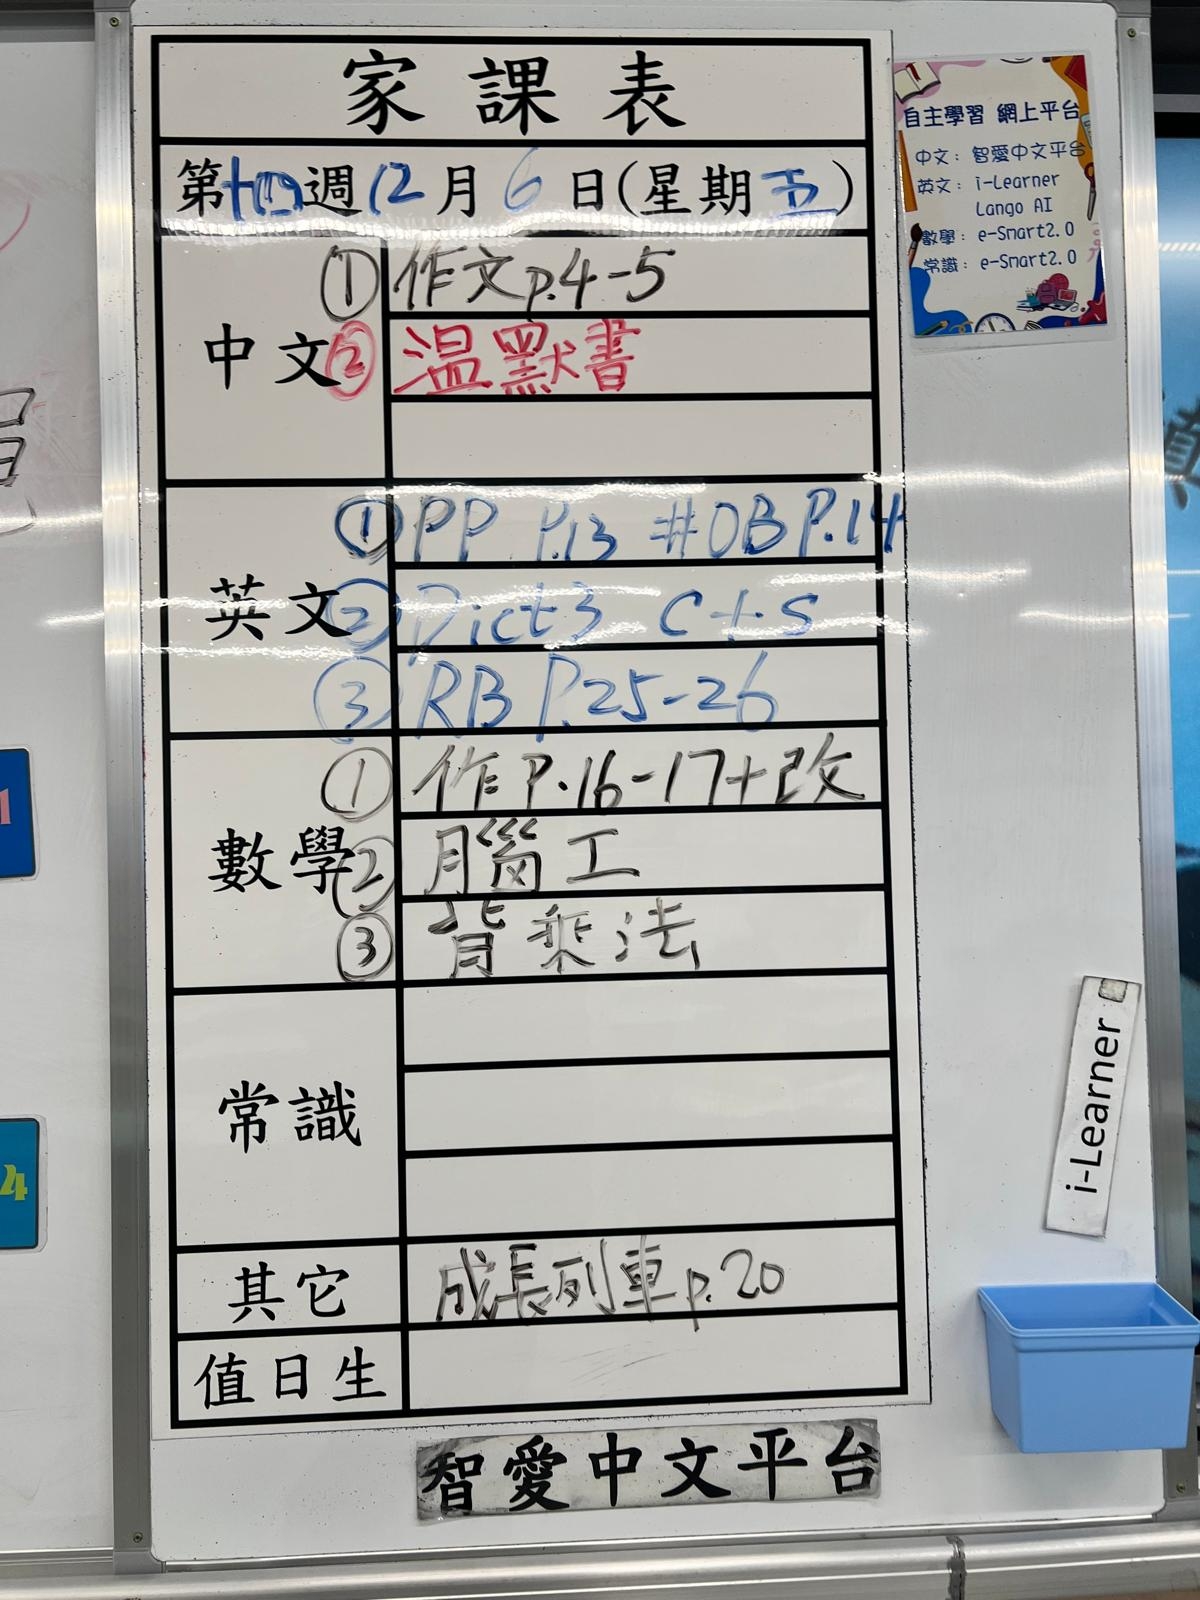 家課表
第十四週12月6日(星期五)
中文
①作文p.4-5
②温默書
英文
①PP P.13 #OB P.14
②Dict3 c+s
③RB P.25-26
數學
①作P.16-17+改
②腦工
③背乘法
常識
其它
成長列車p.20
值日生
智愛中文平台
自主學習 網上平台
中文：智愛中文平台
英文：i-Learner
Lango AI
數學：e-Smart2.0
常識：e-Smart2.0
i-Learner
1
4